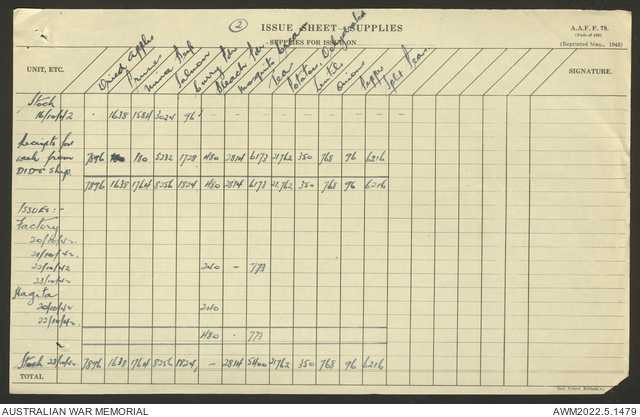 (2) ISSUE SHEET—SUPPLIES
A.A.F. F. 78.
SUPPLIES FOR ISSUE ON
(Reprinted May, 1942)
UNIT, ETC.
Dried Apples
Prunes
Salmon
Curry Pdr
Bleach Pdr
Mosquito Cream
Tea
Potatoes Dehydrated
Onions
Pepper
Split Peas
SIGNATURE.
Stock
16/10/42 - 1638 1584 3024 96
Receipts for
week from 7896 180 5232 1728 480 2814 6173 21762 350 768 96 6216
DID's Ship.
7896 1638 1764 8256 1824 480 2814 6173 21,762 350 768 96 6216
ISSUES:-
Factory
20/10/42
21/10/42
22/10/42 240 - 773
23/10/42
Hagita
20/10/42 240
22/10/42
480 - 773
Stock 23/10/42 7896 1638 1764 8256 1824 - 2814 5400 21762 350 768 96 6216
TOTAL
AUSTRALIAN WAR MEMORIAL
AWM2022.5.1479